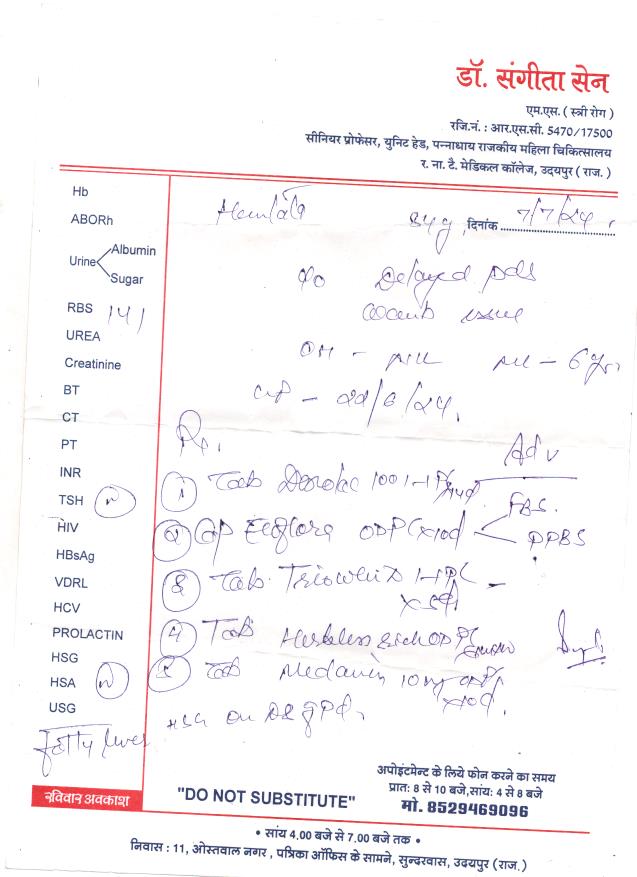 डॉ. संगीता सेन
एम.एस. ( स्त्री रोग )
रजि.नं. : आर.एस.सी. 5470/17500
सीनियर प्रोफेसर, युनिट हेड, पन्नाधाय राजकीय महिला चिकित्सालय
र. ना. टै. मेडिकल कॉलेज, उदयपुर ( राज. )
Hb
ABORh
Urine Albumin
Sugar
RBS 141
UREA
Creatinine
BT
CT
PT
INR
TSH N
HIV
HBsAg
VDRL
HCV
PROLACTIN
HSG
HSA N
USG
Fatty liver
34y, दिनांक 7/7/24.
c/o Delayed pds
issue
OH - Nill ML - 6 yr
LMP - 22/6/24.
Rx.
Adv
FBS.
PPBS
1 Tab 100 1-1
2 Cap ODPC x10d
3 Tab 1-1 PC
x 5d
4 Tab
5 Tab 10 mg
x10d.
HSG on D8 of Pd.
रविवार अवकाश
"DO NOT SUBSTITUTE"
अपोइंटमेन्ट के लिये फोन करने का समय
प्रात: 8 से 10 बजे,सांय: 4 से 8 बजे
मो. 8529469096
• सांय 4.00 बजे से 7.00 बजे तक •
निवास : 11, ओस्तवाल नगर , पत्रिका ऑफिस के सामने, सुन्दरवास, उदयपुर (राज.)